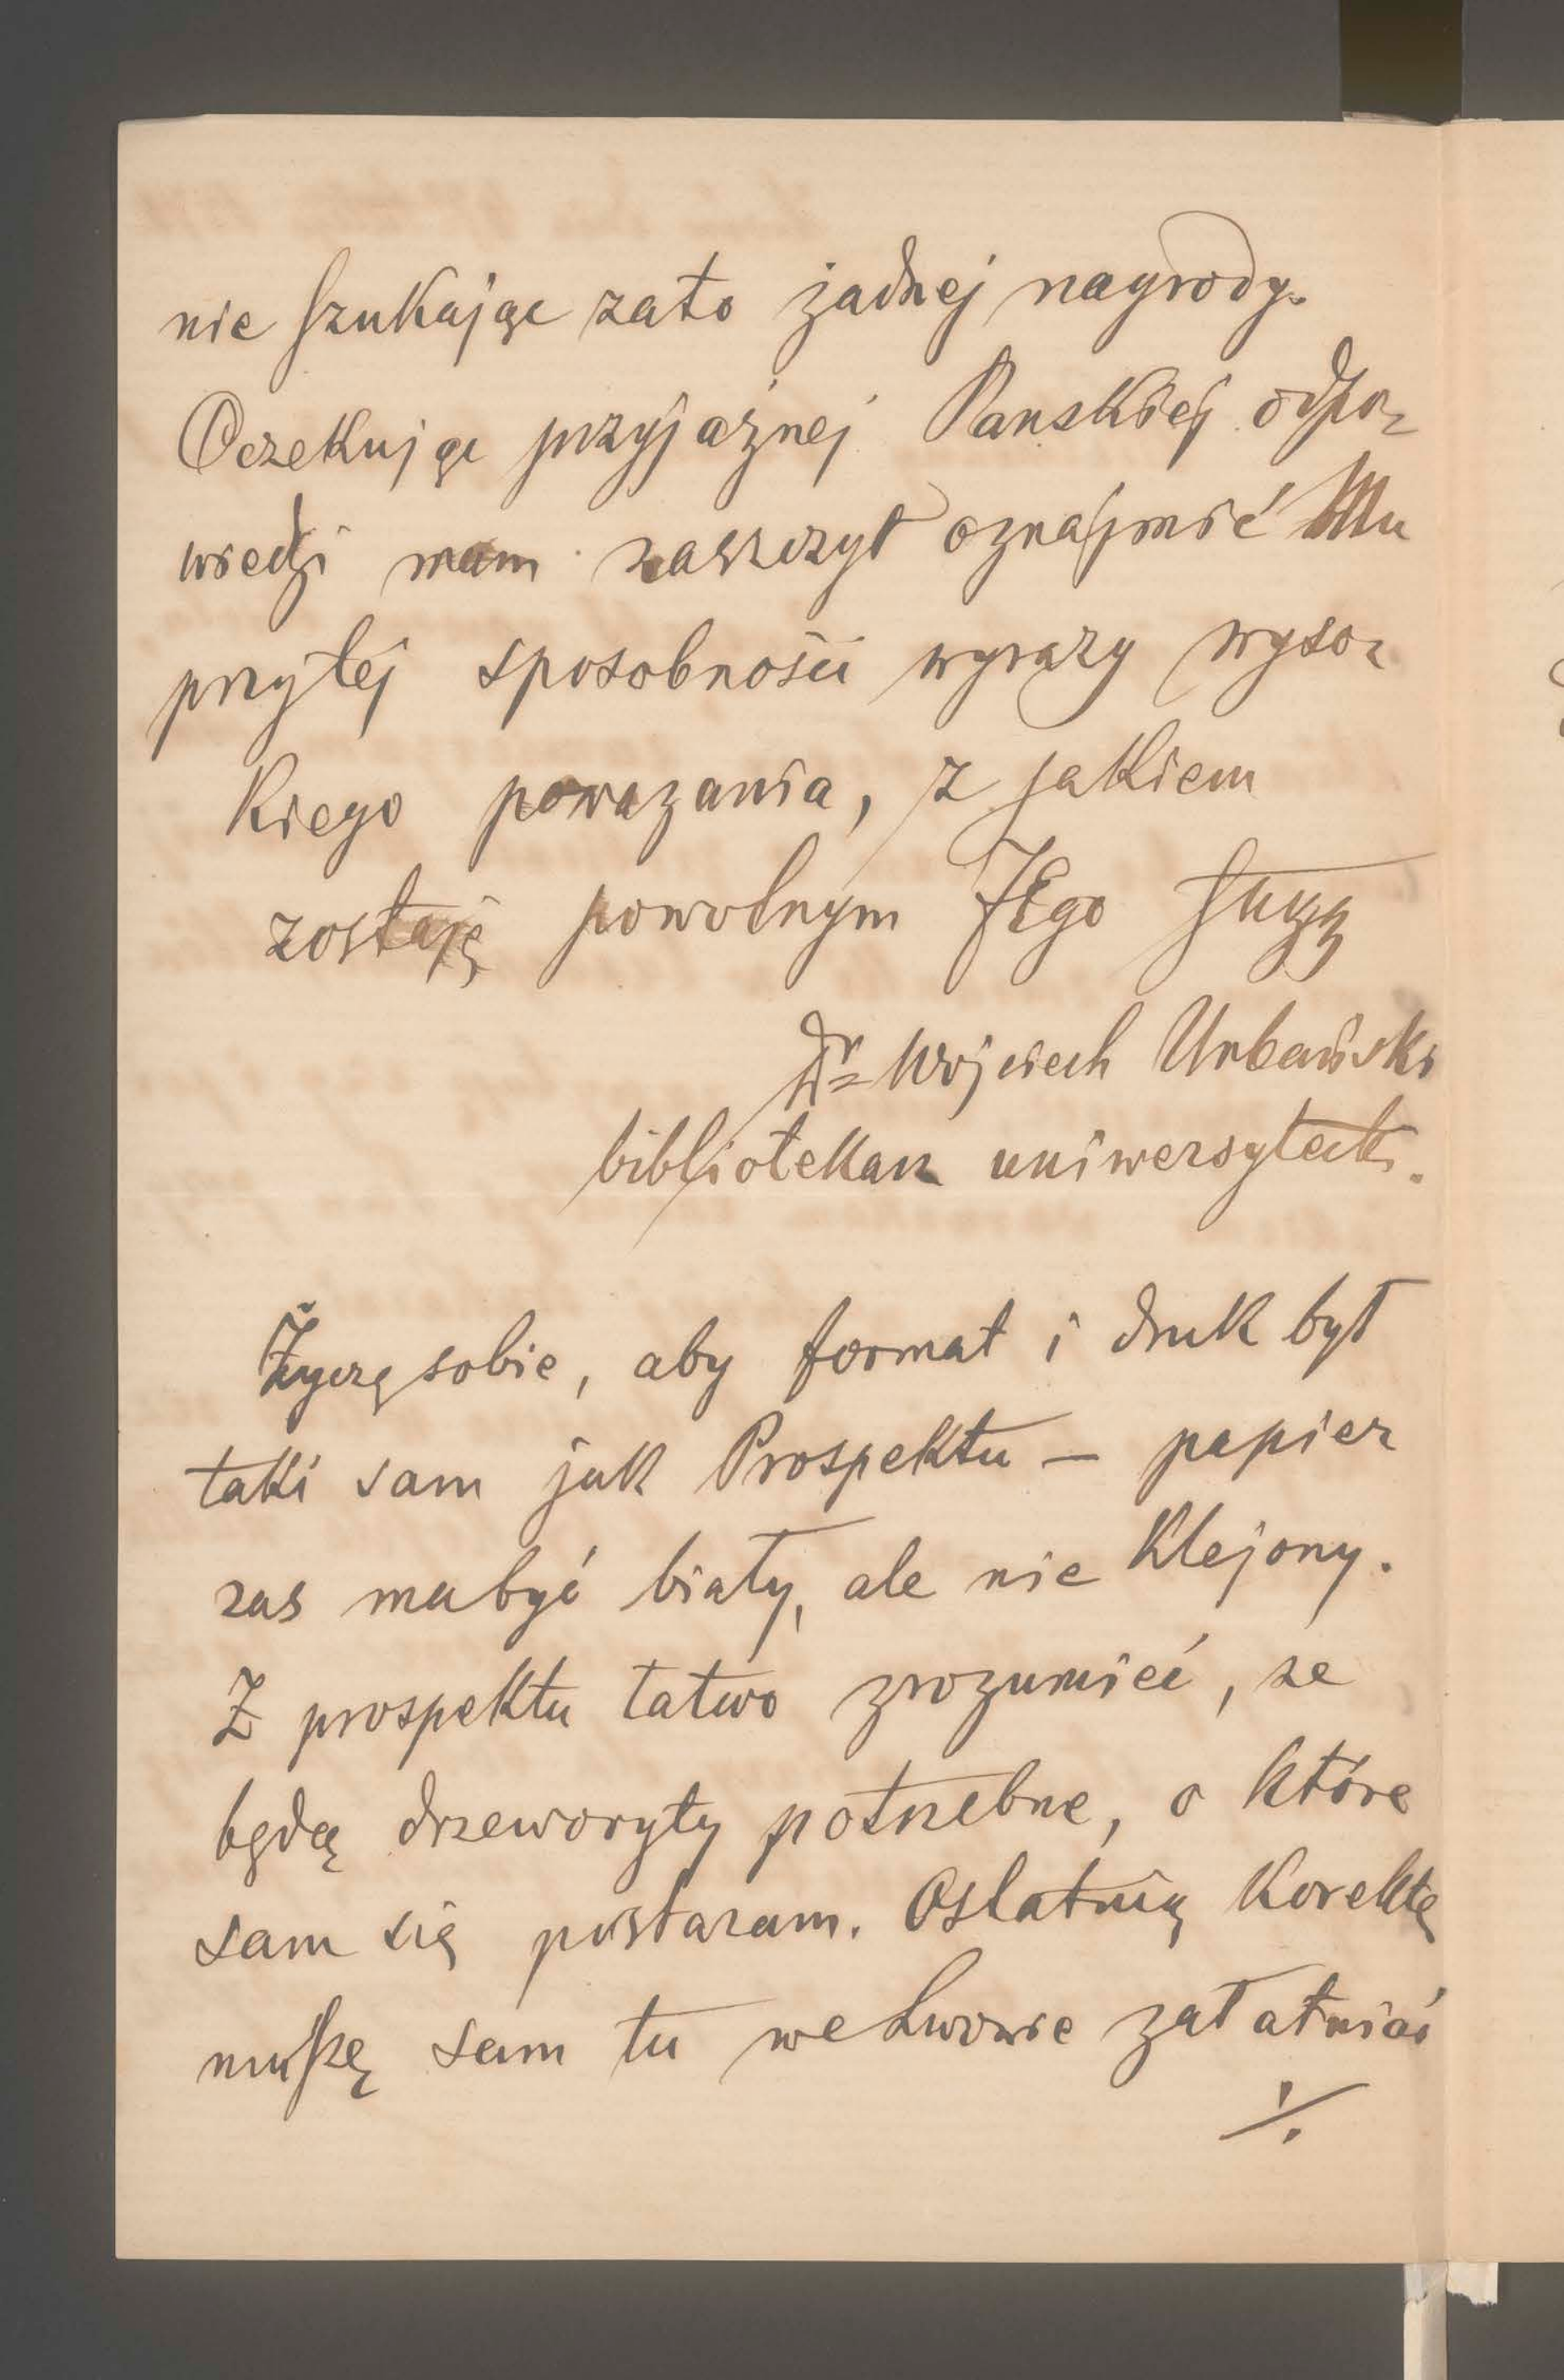 nie szukając zato żadnej nagrody.
Oczekując przyjaźnej Panskiej odpo-
wiedzi mam zaszczyt oznajmić Mu
przytéj sposobności wyrazy wyso-
kiego poważania, z jakiem
zostaję powolnym JEgo sługą
Dr Wojciech Urbański
bibliotekarz uniwersyteck.
Życzę sobie, aby format i druk był
taki sam jak Prospektu — papier
zas mabyć biały, ale nie klejony.
Z prospektu łatwo zrozumieć, ze
będą drzeworyty potrzebne, o które
sam się postaram. Ostatnią korektę
muszę sam tu we Lwowie załatwiać
./.